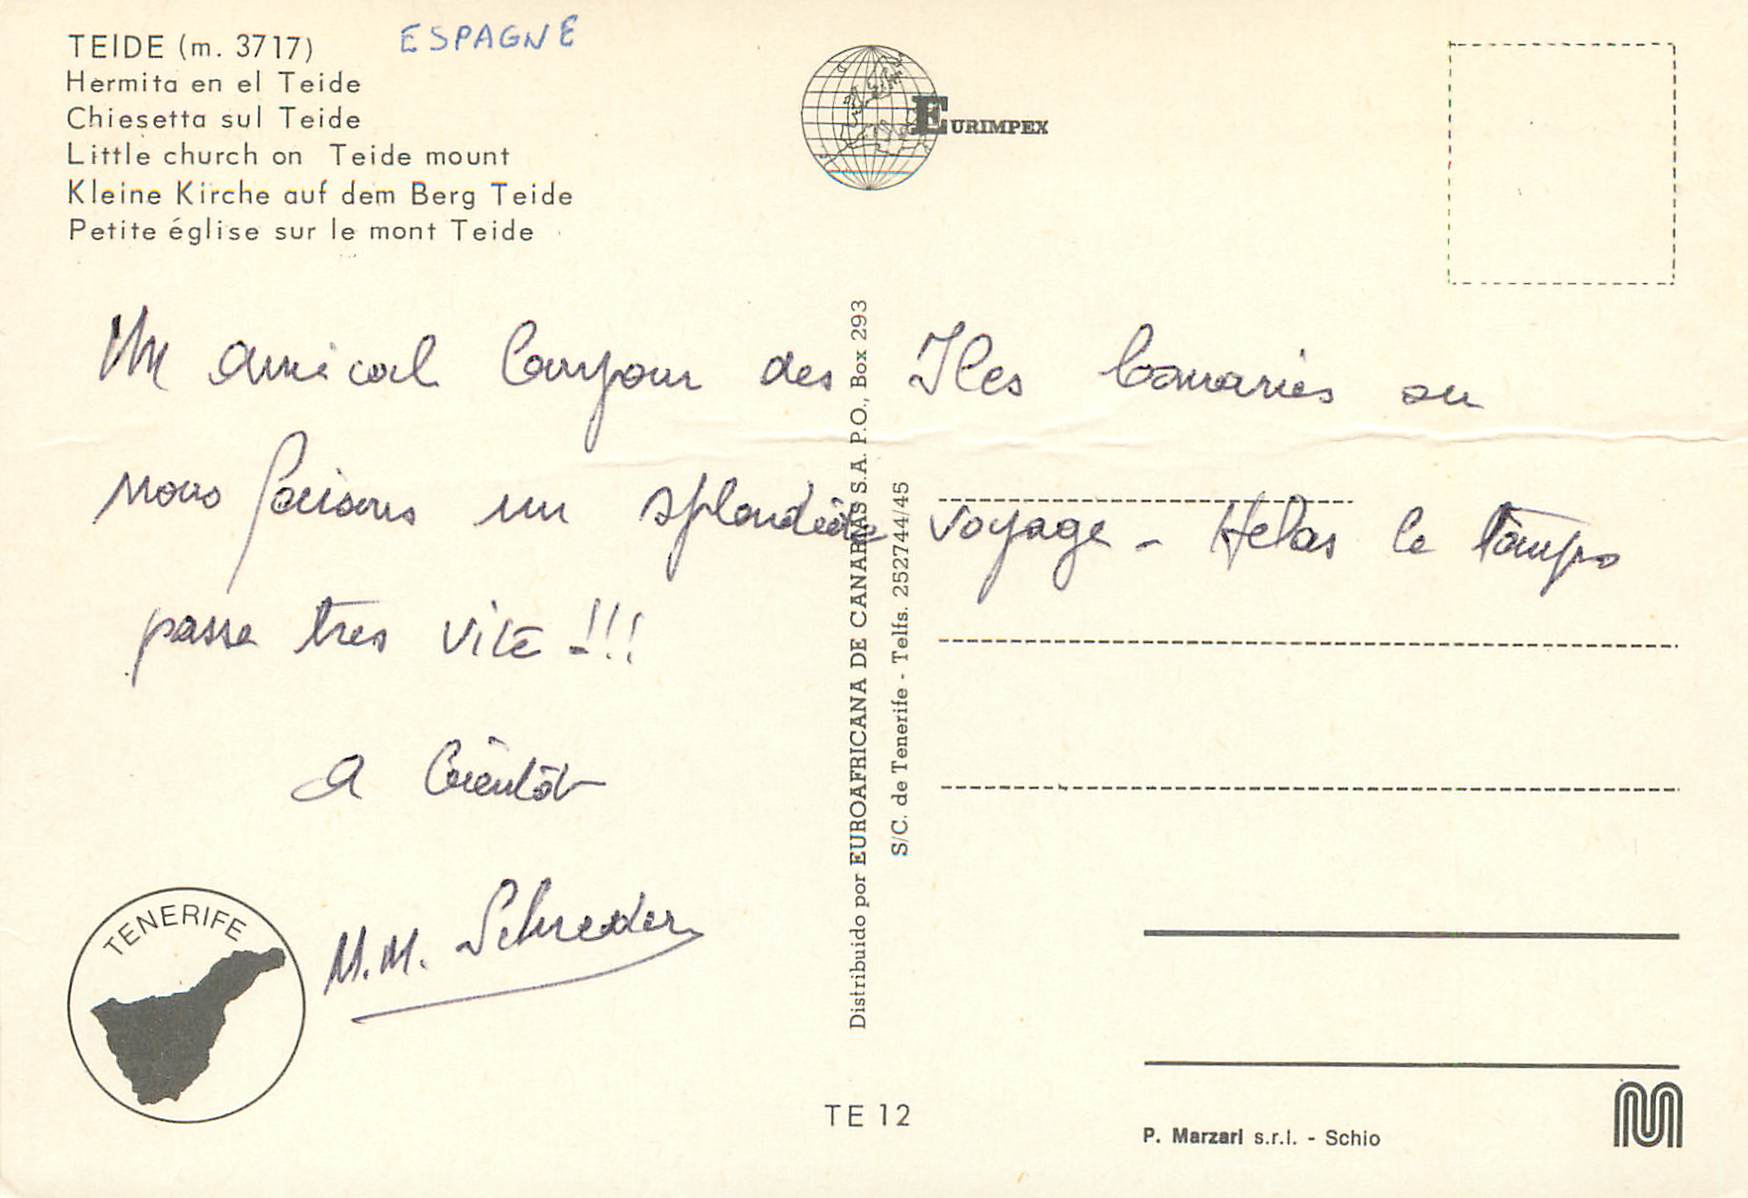 TEIDE (m. 3717)
ESPAGNE
Hermita en el Teide
Chiesetta sul Teide
Little church on Teide mount
Kleine Kirche auf dem Berg Teide
Petite église sur le mont Teide
EURIMPEX
Un amical bonjour des Iles Canaries ou
nous faisons un splendide voyage - Helas le temps
passe tres vite -!!!
A bientôt
M.M. Schreder
TENERIFE
Distribuido por EUROAFRICANA DE CANARIAS S.A. P.O., Box 293
S/C. de Tenerife - Telfs. 252744/45
TE 12
P. Marzari s.r.l. - Schio